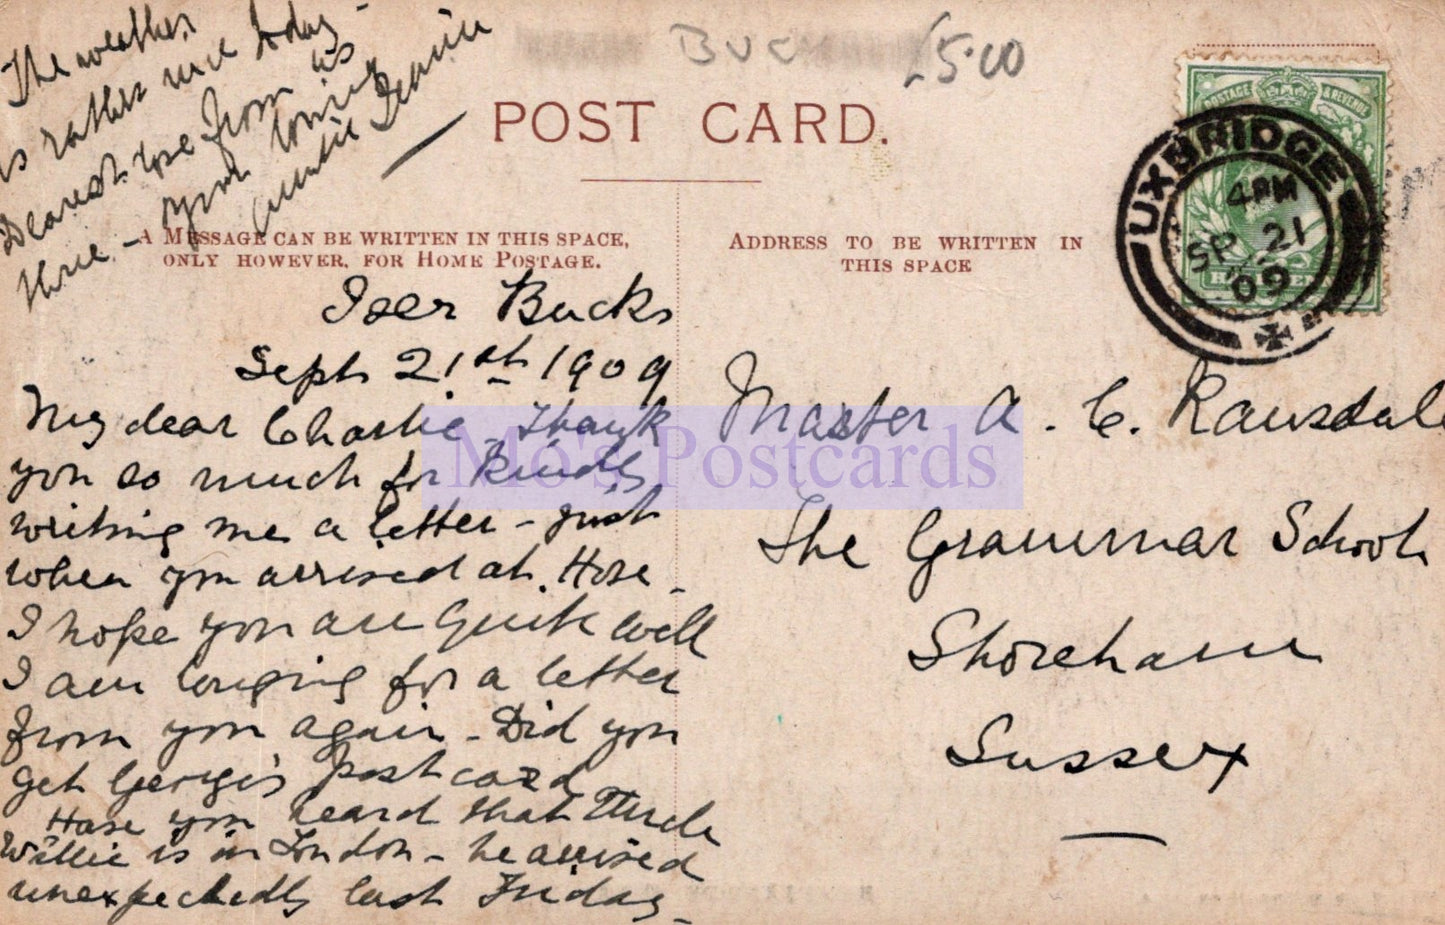 The weather
is rather nice today -
Dearest love from us
three - Your loving
Auntie
BUCK
£5.00
POST CARD.
A MESSAGE CAN BE WRITTEN IN THIS SPACE,
ONLY HOWEVER, FOR HOME POSTAGE.
ADDRESS TO BE WRITTEN IN
THIS SPACE
POSTAGE & REVENUE
UXBRIDGE
4 PM
SP 21
09
Iver Bucks
Sept 21st 1909
My dear Charlie, Thank
you so much for Kindly
writing me a letter - just
when you arrived at. Hove -
I hope you are Quite well
I am longing for a letter
from you again - Did you
get Georgie's post card
Have you heard that Uncle
Willie is in London - he arrived
unexpectedly last Friday -
Master A. C. Ransdale
The Grammar School
Shoreham
Sussex
Mo's Postcards